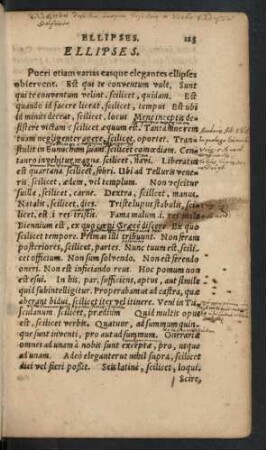 ELLIPSES. 125
ELLIPSES.
Pueri etiam varias easque elegantes ellipses
observent. Est qui te conventum vult, Sunt
qui te conventum velint, scilicet, quidam. Est
quando id facere liceat, scilicet, tempus Est ubi
id minus deceat, scilicet, locus Mene incepto de-
sistere victam? scilicet æquum est. Tantamne rem
tam negligenter agere, scilicet, oportet. Tran-
stulit in Eunuchum suam, scilicet comœdiam. Cen-
tauro invehitur magna, scilicet, navi. Liberatus
est quartana scilicet, febri. Ubi ad Telluris vene-
ris, scilicet, ædem, vel templum Non vescitur
suilla, scilicet, carne. Dextra, scilicet, manus.
Natalis, scilicet, dies. Triste lupus stabulis, scili-
licet, est i. res tristis. Fama malum i. res mala
Biennium est, ex quo cœpi Græce discere Ex quo
scilicet tempore. Primas illi tribuunt. Non feram
posteriores, scilicet, partes. Nunc tuum est, scili-
cet officium. Non sum solvendo. Non est ferendo
oneri. Non est inficiando reus. Hoc pomum non
est esui. In his, par, sufficiens, aptus, aut simile
quid subintelligitur. Properabamus ad castra, quæ
aberant bidui, scilicet iter vel itinere. Veni in Tu-
sculanum scilicet, prædium Quid multis opus
est, scilicet verbis. Quatuor, ad summum quin-
que sunt inventi, pro aut ad summum. Onerariæ
omnes ad unam à nobis sunt exceptæ, pro, usque
ad unam. Adeò eleganter ut nihil supra, scilicet
dici vel fieri possit. Scis latinè, scilicet, loqui,
Scire,